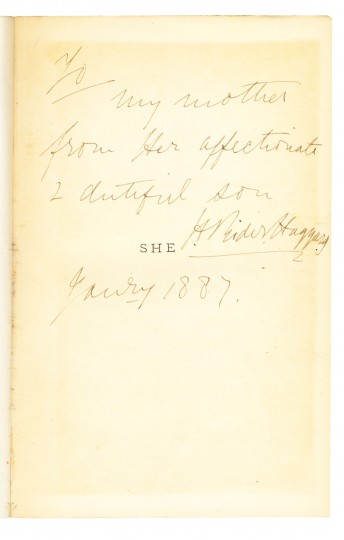 To
my mother
from Her affectionate
& dutiful son
H. Rider Haggard
SHE
Janry 1887.